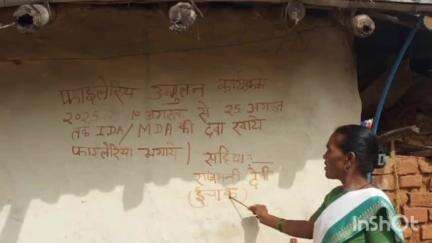 फाइलेरिया उन्मुलन कार्यक्रम
2025 10 अगस्त से 25 अगस्त
तक IDA/MDA की दवा खाये
फाइलेरिया भगाये। सहिया:—
देवी
InShot